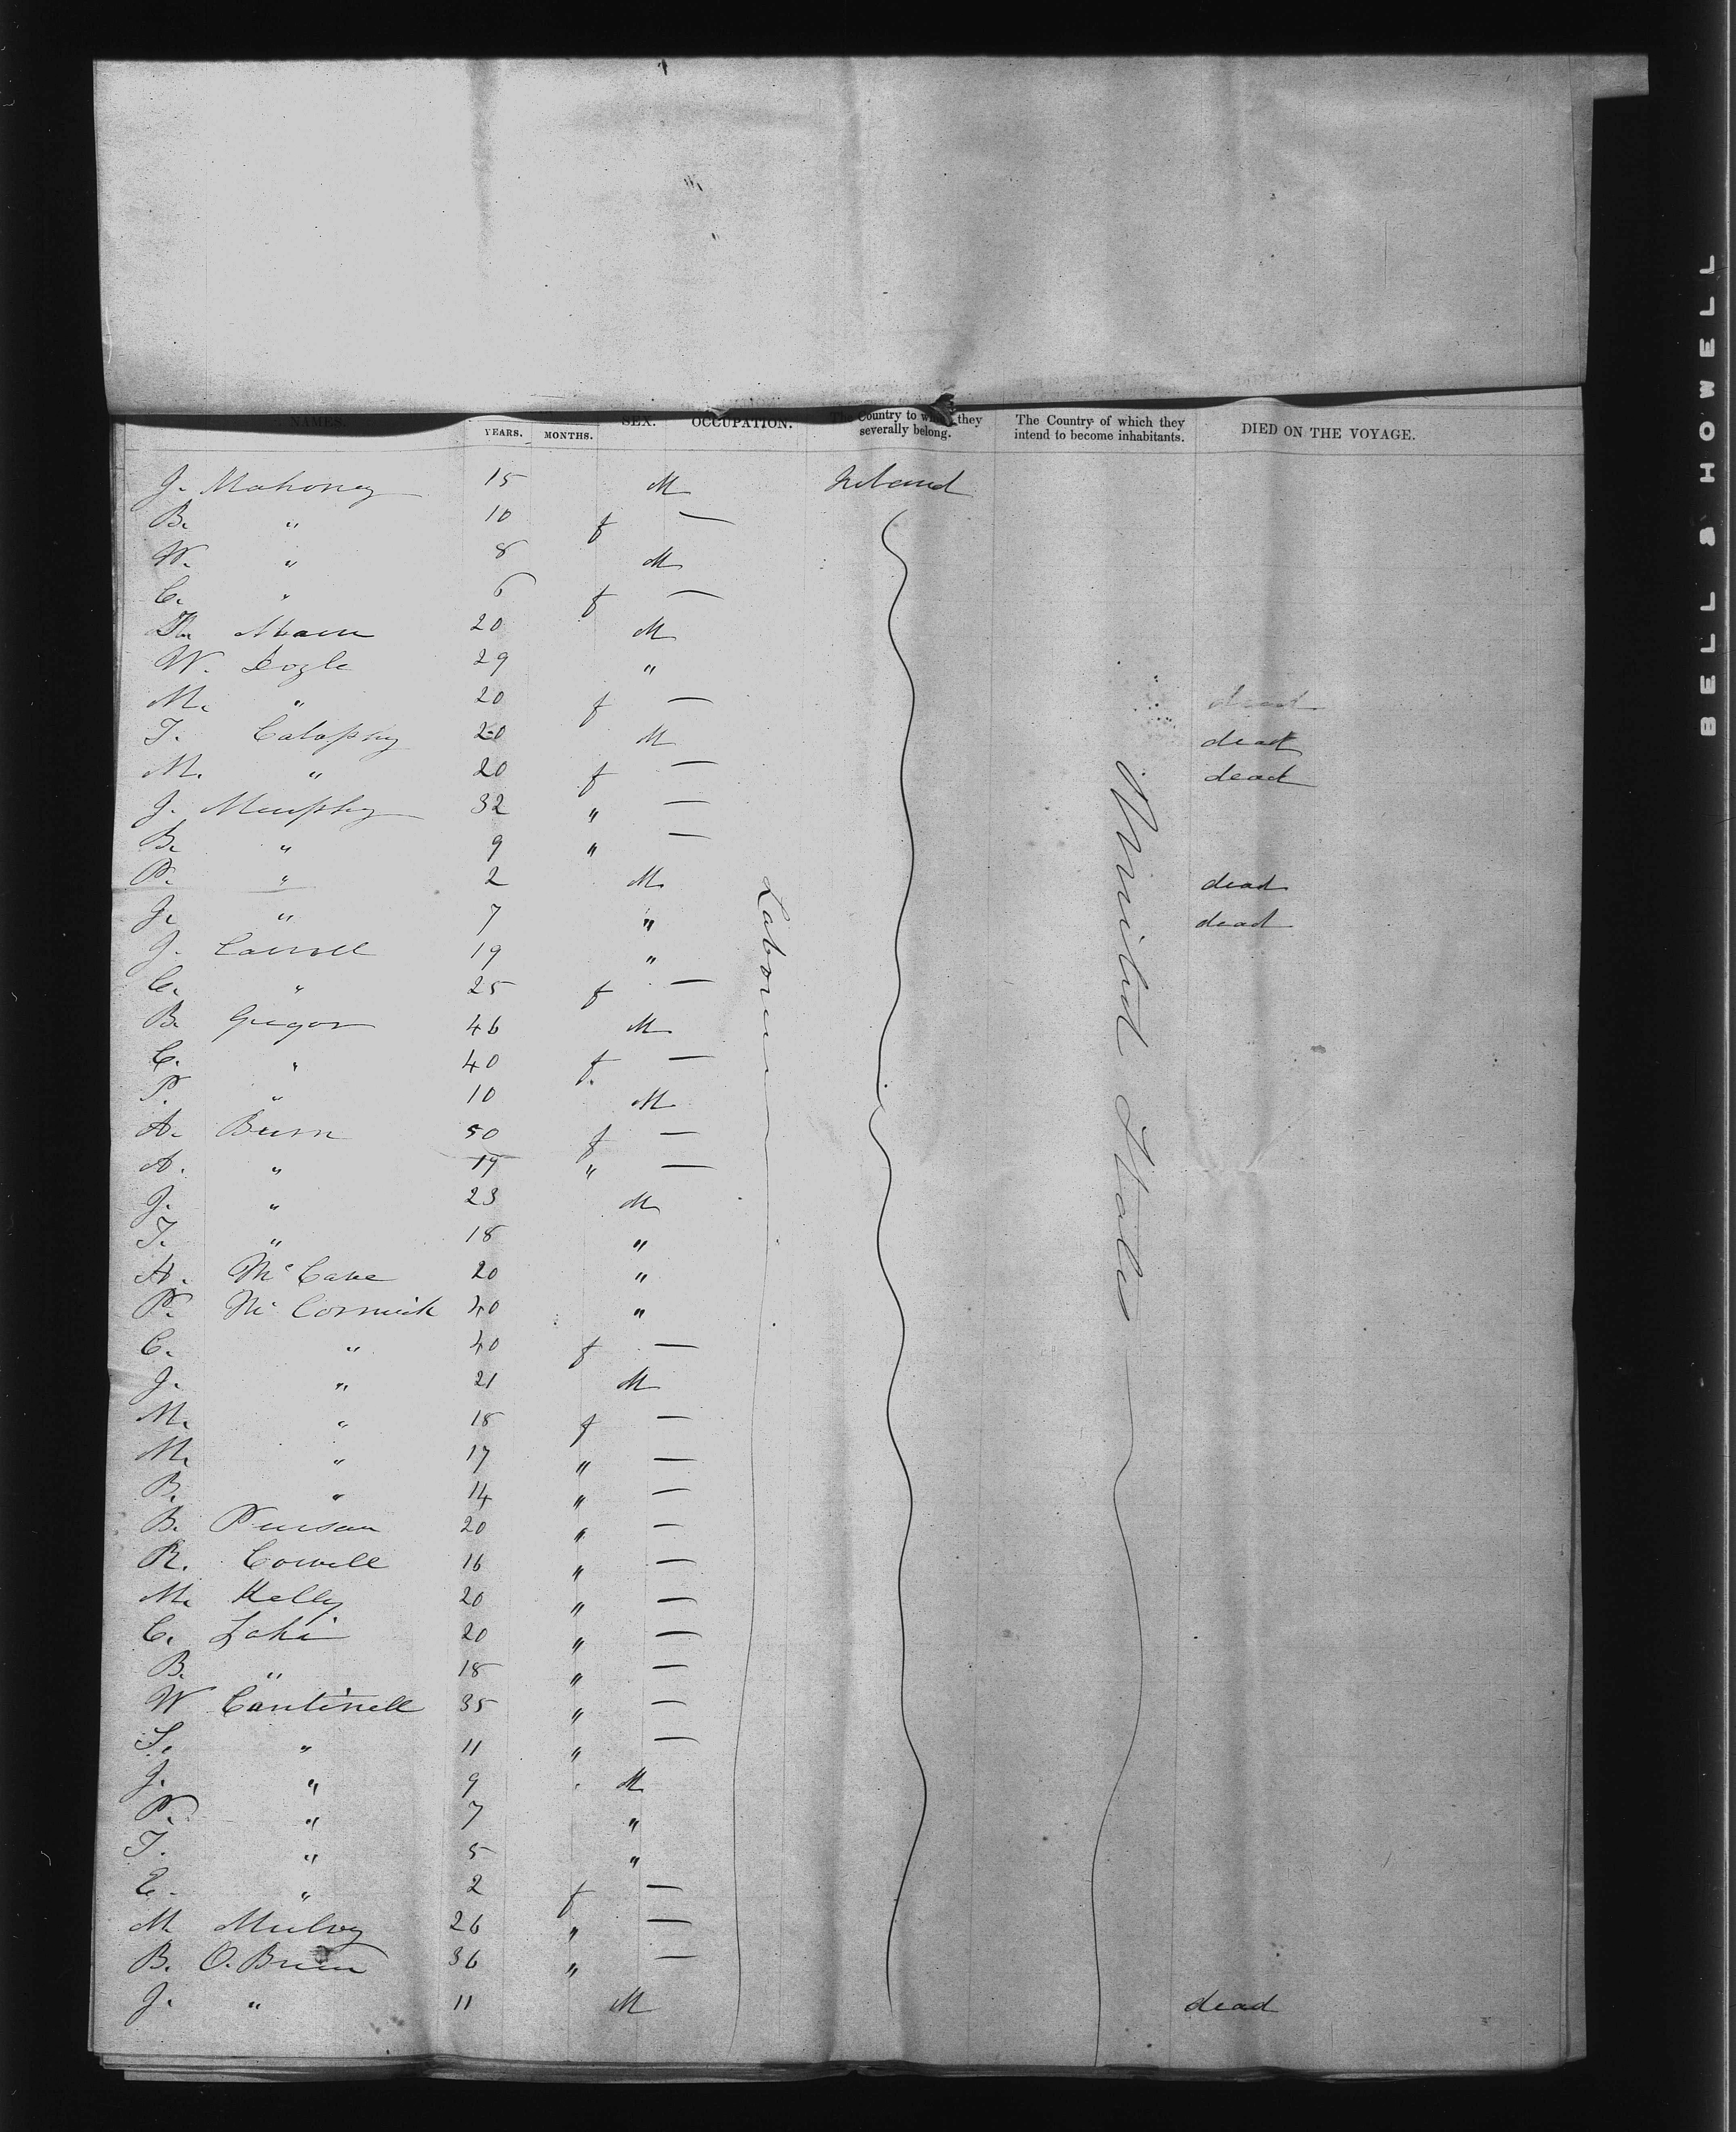 NAMES. YEARS. MONTHS. SEX. OCCUPATION. The Country to they severally belong. The Country of which they intend to become inhabitants. DIED ON THE VOYAGE.
J. Mahoney 15 M Ireland
B. " 10 f —
W. " 8 M
C. " 6 f —
20 M
W. Doyle 29 "
M. " 20 f — dead
T. 20 M dead
M. " 20 f — dead
J. Murphy 32 " —
B. " 9 " —
P. " 2 M dead
J. " 7 " dead
J. Carroll 19 "
C. " 25 f —
B. Gregor 46 M
C. " 40 f. —
P. " 10 M
A. Burn 50 f —
A. " 17 " —
J. " 23 M
T. " 18 "
H. McCabe 20 "
P. McCormick 40 "
C. " 40 f —
J. " 21 M
M. " 18 f —
M. " 17 " —
B. " 14 " —
B. 20 " —
R. Cowell 16 " —
M. Kelly 20 " —
C. 20 " —
B. " 18 " —
W Cantinell 35 " —
S. " 11 " —
J. " 9 M
P. " 7 "
T. " 5 "
E. " 2 f —
M Mulvy 26 " —
B. O.Brien 36 " —
J. " 11 M dead
United States
BELL & HOWELL